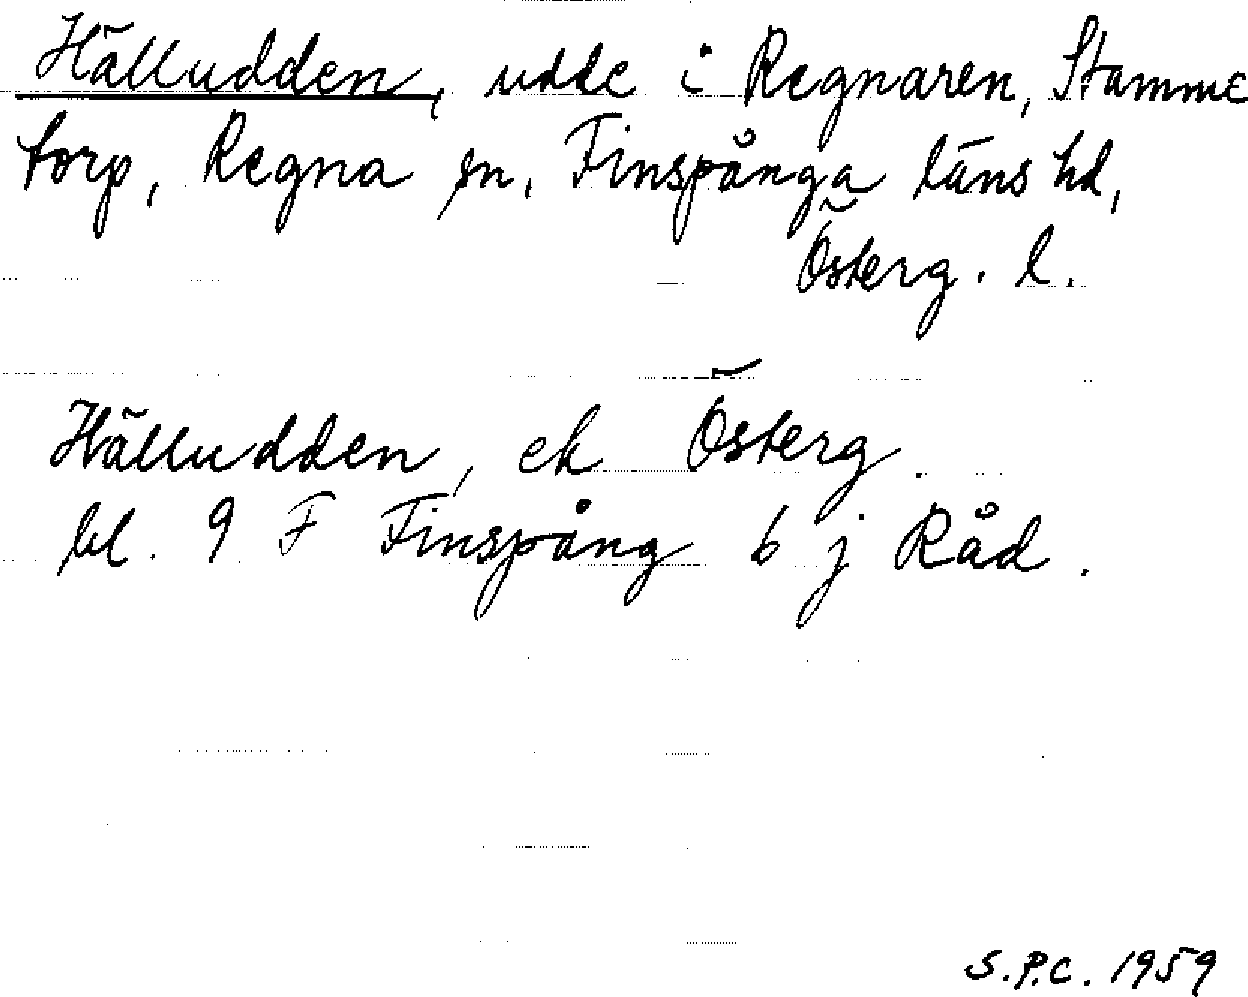 Hälludden, udde i Regnaren, Stamme
torp, Regna sn, Finspånga läns hd,
Österg. l.
Hälludden, ek Österg.
bl. 9 F Finspång 6 j Råd.
S.P.C. 1959